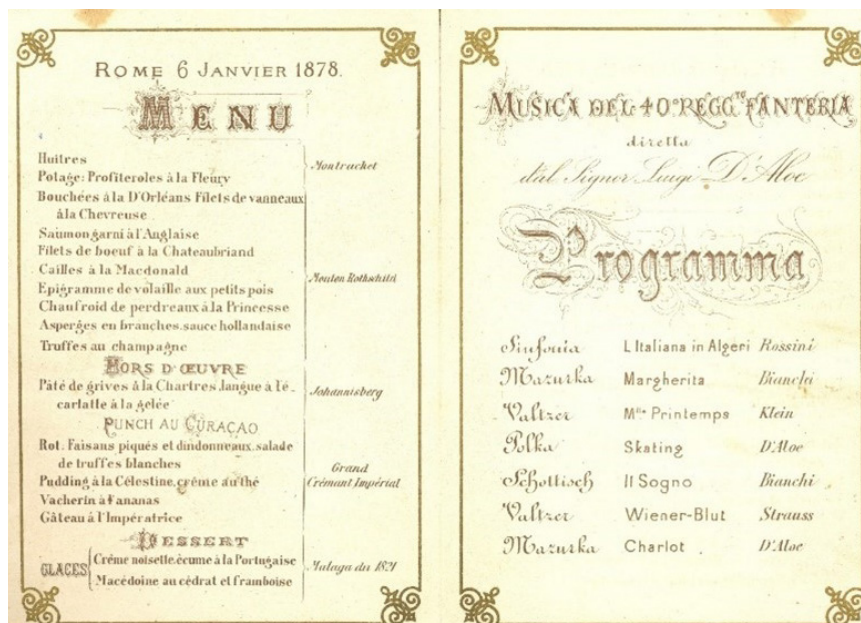 ROME 6 JANVIER 1878.
MENU
Huitres
Potage: Profiteroles à la Fleury
Montrachet
Bouchées à la D'Orléans Filets de vanneaux
à la Chevreuse
Saumon garni à l'Anglaise
Filets de boeuf à la Chateaubriand
Cailles à la Macdonald
Epigramme de volaille aux petits pois
Chaufroid de perdreaux à la Princesse
Asperges en branches. sauce hollandaise
Truffes au champagne
Mouton Rothschild
HORS D'ŒUVRE
Pâté de grives à la Chartres, langue à l'é-
carlatte à la gelée
Johannisberg
PUNCH AU CURAÇAO
Rot. Faisans piqués et dindonneaux. salade
de truffes blanches
Pudding à la Célestine. crême au thé
Vacherin à l'ananas
Gâteau à l'Impératrice
Grand
Crémant Impérial
DESSERT
GLACES
Crême noisette. écume à la Portugaise
Macédoine au cédrat et framboise
Malaga du 1821
MUSICA DEL 40º REGG.TO FANTERIA
diretta
dal Signor Luigi D'Aloe
Programma
Sinfonia L'Italiana in Algeri Rossini
Mazurka Margherita Bianchi
Valtzer Mlle Printemps Klein
Polka Skating D'Aloe
Schottisch Il Sogno Bianchi
Valtzer Wiener-Blut Strauss
Mazurka Charlot D'Aloe